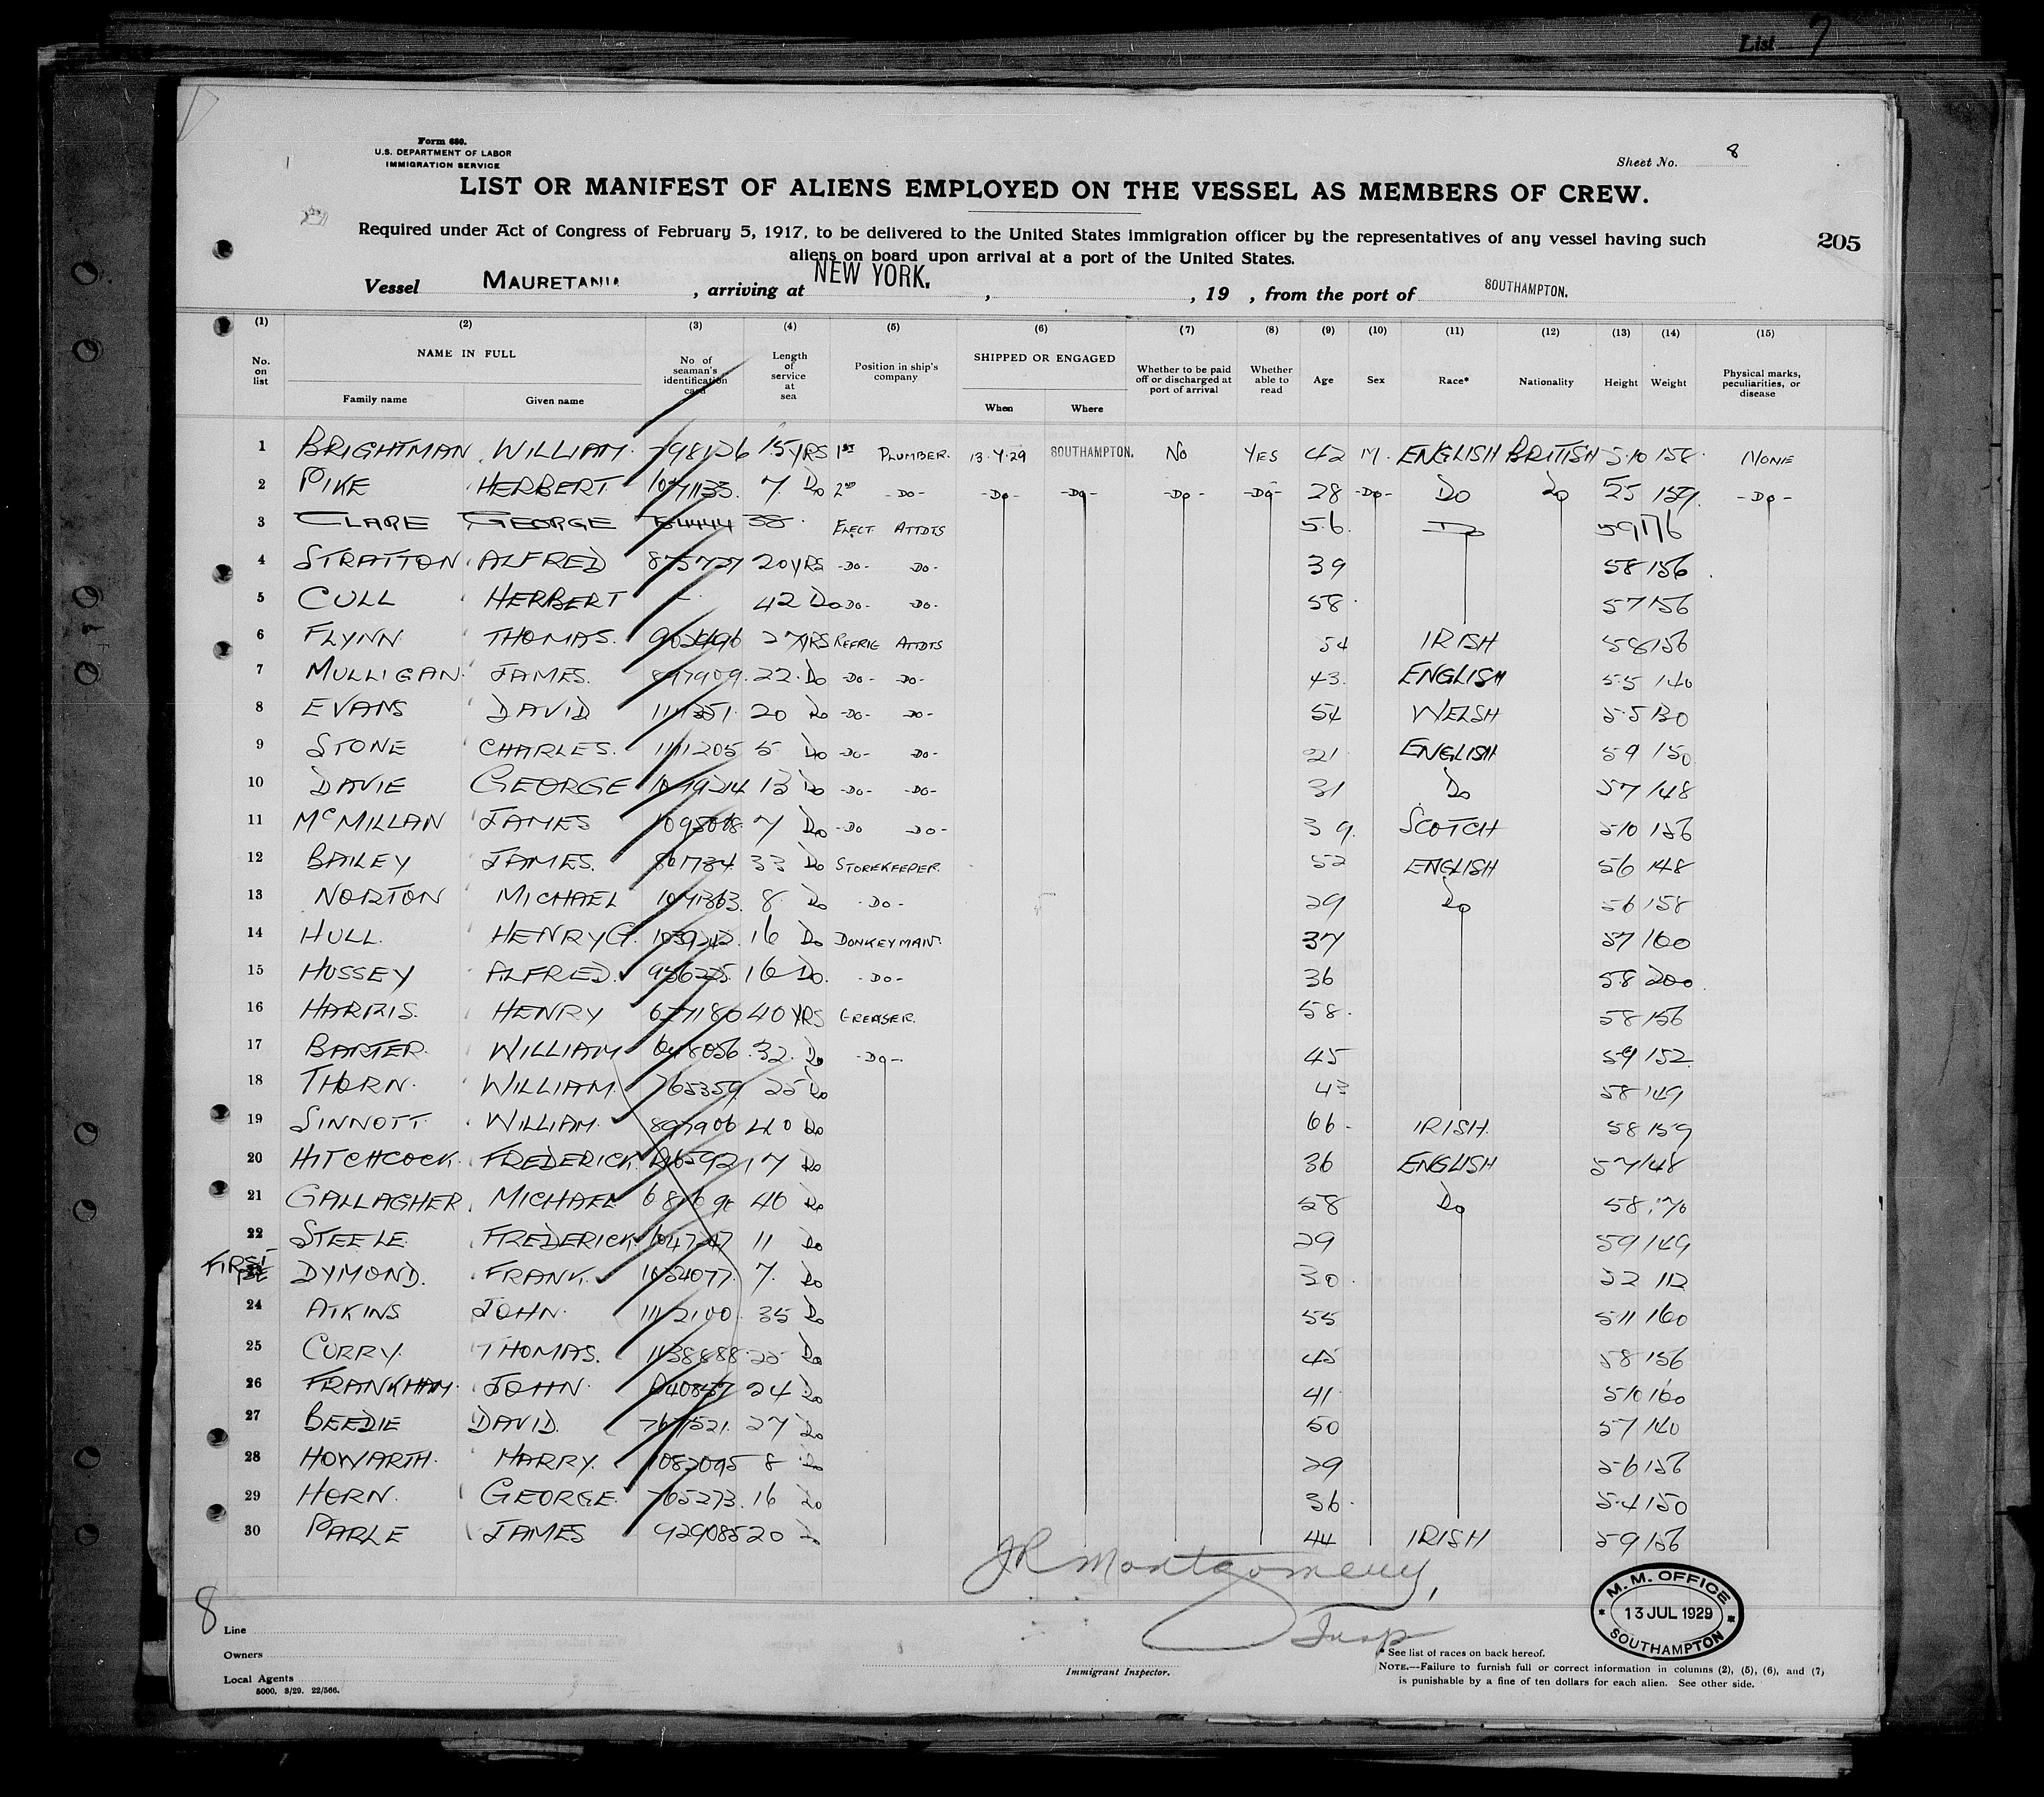 List 7
Form 680.
U.S. DEPARTMENT OF LABOR
IMMIGRATION SERVICE
Sheet No. 8
LIST OR MANIFEST OF ALIENS EMPLOYED ON THE VESSEL AS MEMBERS OF CREW.
Required under Act of Congress of February 5, 1917, to be delivered to the United States immigration officer by the representatives of any vessel having such
aliens on board upon arrival at a port of the United States.
205
Vessel MAURETANIA , arriving at NEW YORK. , , 19 , from the port of SOUTHAMPTON.
(1) (2) (3) (4) (5) (6) (7) (8) (9) (10) (11) (12) (13) (14) (15)
No. on list NAME IN FULL Family name Given name No. of seaman's identification card Length of service at sea Position in ship's company SHIPPED OR ENGAGED When Where Whether to be paid off or discharged at port of arrival Whether able to read Age Sex Race* Nationality Height Weight Physical marks, peculiarities, or disease
1 BRIGHTMAN WILLIAM. 798126 15 YRS 1ST PLUMBER. 13.7.29 SOUTHAMPTON. NO YES 42 M. ENGLISH BRITISH 5.10 158 NONE
2 PIKE HERBERT 1071133. 7. DO 2ND -DO- -DO- -DO- -DO- -DO- 28 -DO- DO DO 55 159. -DO-
3 CLARE GEORGE 38. ELECT ATTDTS 56. DO 59 176
4 STRATTON ALFRED 875727 20 YRS -DO- -DO- 39 58 156
5 CULL HERBERT - 42 DO DO- DO- 58 57 156
6 FLYNN THOMAS. 27 YRS REFRIG ATTDTS 54 IRISH 58 156
7 MULLIGAN JAMES. 897909. 22. DO -DO- -DO- 43. ENGLISH 5.5 140
8 EVANS DAVID 1111351. 20 DO -DO- DO- 54 WELSH 5.5 130
9 STONE CHARLES. 1111205 5 DO -DO- DO- 21 ENGLISH 59 150
10 DAVIE GEORGE 1079214 13 DO -DO- -DO- 31 DO 57 148
11 MCMILLAN JAMES 1095008. 7 DO -DO DO- 39. SCOTCH 510 156
12 BAILEY JAMES. 801734. 33 DO STOREKEEPER. 52 ENGLISH 56 148
13 NORTON MICHAEL 1071363. 8 DO -DO- 29 DO 56 158
14 HULL. HENRY G. 1039242. 16 DO DONKEYMAN. 37 57 160
15 HUSSEY ALFRED. 936225. 16 DO. -DO- 36 58 200
16 HARRIS. HENRY 671180 40 YRS GREASER. 58. 58 156
17 BARTER. WILLIAM 648056. 32. DO -DO- 45 59 152
18 THORN. WILLIAM. 765359 25 DO 43 58 149
19 SINNOTT. WILLIAM. 897906 40 DO 66 - IRISH. 58 159
20 HITCHCOCK. FREDERICK. 17 DO 36 ENGLISH 57 148
21 GALLAGHER. MICHAEL 40 DO 58 DO 58 170
22 STEELE. FREDERICK. 1047247 11 DO 29 59 149
FIRST DYMOND. FRANK. 1054077. 7. DO 30. 52 112
24 ATKINS JOHN. 1112100. 35 DO 55 511 160
25 CURRY. THOMAS. 1138888 25 DO 45 58 156
26 FRANKHAM. JOHN. 24 DO 41 510 160
27 BEEDIE DAVID. 767521. 27 DO 50 57 140
28 HOWARTH. HARRY. 1082095 8 DO 29 56 156
29 HORN. GEORGE. 765273. 16 DO 36. 5.4 150
30 PARLE JAMES 929085 20 DO 44 IRISH 59 156
JR Montgomery,
Insp
M. M. OFFICE
13 JUL 1929
SOUTHAMPTON
8
Line
Owners
Local Agents
5000. 3/29. 22/566.
Immigrant Inspector.
* See list of races on back hereof.
NOTE.—Failure to furnish full or correct information in columns (2), (5), (6), and (7)
is punishable by a fine of ten dollars for each alien. See other side.